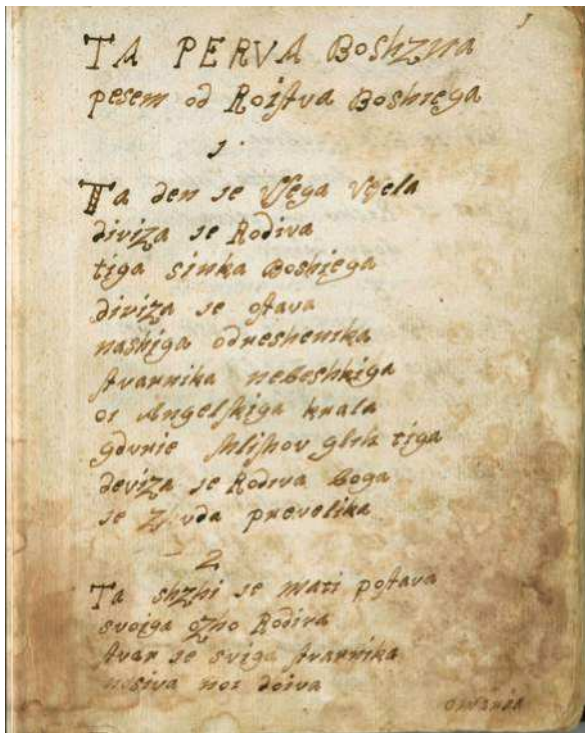 1
TA PERVA BoshZna
pesem od Roiſtva Boshięga
1.
Ta den je Vſęga Vęęla
diviza je Rodiva
tiga sinka Boshięga
diviza je oſtava
nashiga odreshenika
ſtvarnika nebeshkiga
oi Angelſkiga krala
gdvrie ſhliſhov glih tiga
deviza je Rodiva boga
je prevelika
2
Ta je mati poſtava
svoiga ozho Rodiva
ſtvar je sviga ſtvarnika
nosiva noi doiva